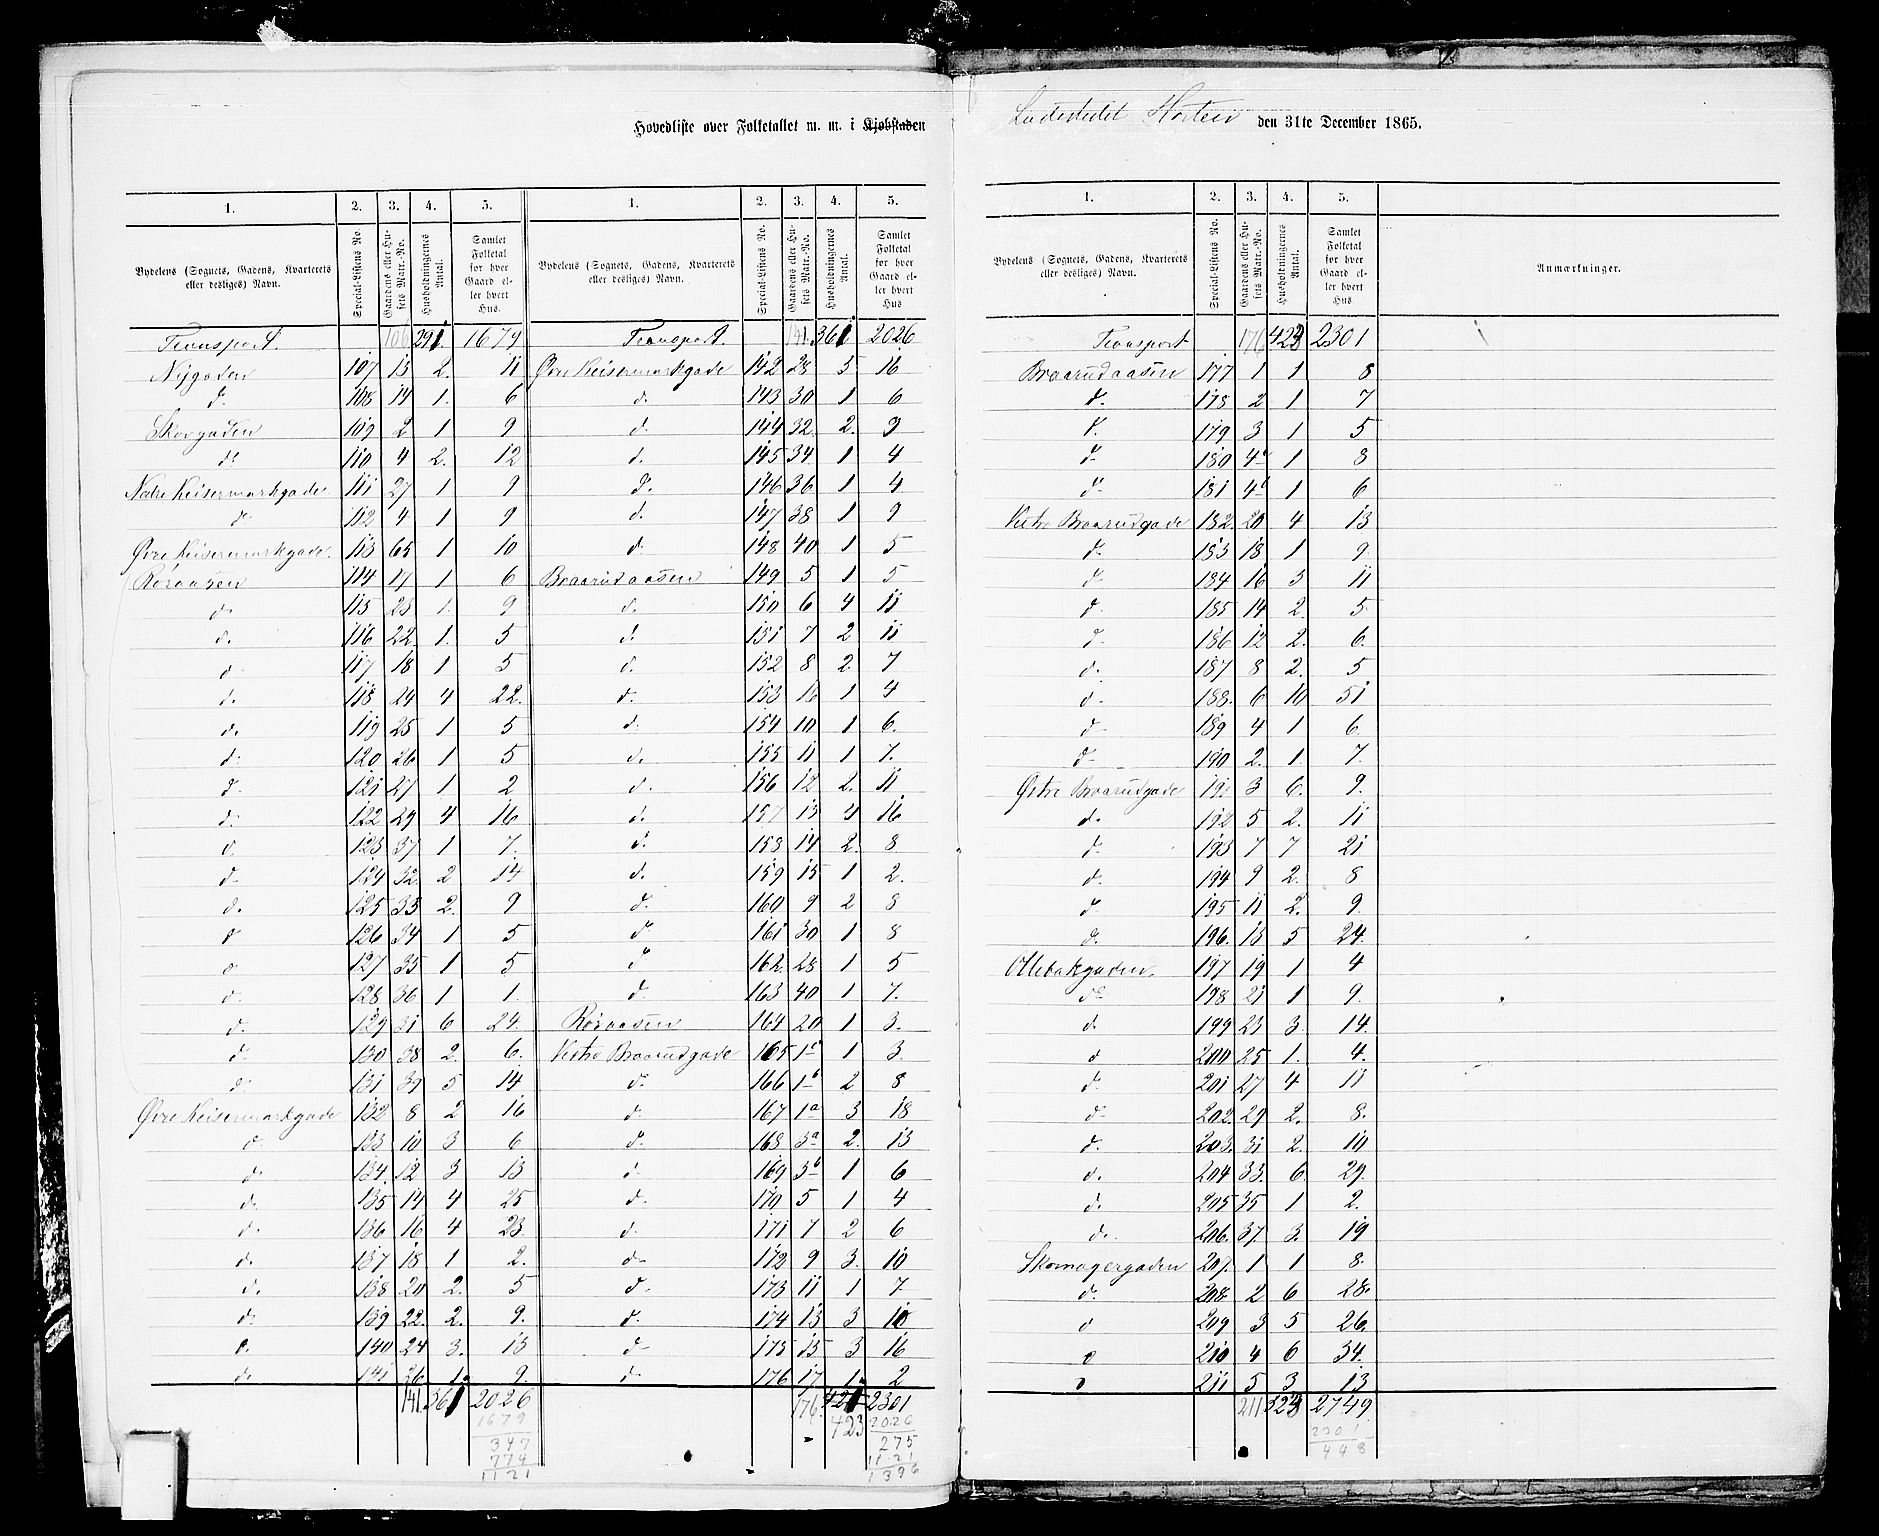 Hovedliste over Folketallet m. m. i Kjøbstaden Ladestedet Horten den 31te December 1865.
1. 2. 3. 4. 5. 1. 2. 3. 4. 5.
Bydelens (Sognets, Gadens, Kvarterets eller desliges) Navn. Special-Listens No. Gaardens eller Husets Matr.-No. Husholdningernes Antal. Samlet Folketal for hver Gaard eller hvert Hus. Bydelens (Sognets, Gadens, Kvarterets eller desliges) Navn. Special-Listens No. Gaardens eller Husets Matr.-No. Husholdningernes Antal. Samlet Folketal for hver Gaard eller hvert Hus.
Transport. 106 291 1679
Nygaden 107 13 2. 11
d. 108 14 1. 6
Skovgaden 109 2 1 9
d. 110 4 2. 12
Nedre Keisermarkgade 111 27 1 9
d. 112 4 1 9
Øvre Keisermarkgade. 113 65 1 10
Røraasen 114 17 1 6
d. 115 23 1. 9
d. 116 22. 1. 5
d 117 18 1 5
d. 118 24 4 22.
d. 119 25 1 5
d. 120 26 1 5
d. 121 27 1 2
d. 122 29 4 16
d. 123 37 1 7.
d. 124 32. 2 14
d. 125 33 2. 9
d 126 34 1 5
d 127 35 1 5
d. 128 36 1 1.
d. 129 31 6 24.
d. 130 38 2. 6.
d. 131 39 5 14
Øvre Keisermarkgade 132 8 2 16
d. 133 10 3 6
d. 134. 12 3 13
d. 135 14 4 25
d. 136 16 4 23
d. 137 18 1 2.
d. 138 20 2. 5
d. 139 22. 2. 9.
d. 140 24 3. 13
d. 141 26 1. 9.
141. 361 2026
1679
347
774
1121
Transport. 141. 361 2026
Øvre Keisermarkgade 142 28 5 16
d. 143 30 1 6
d. 144 32. 2. 9
d. 145 34. 1 4
d. 146 36 1 4
d. 147 38 1 9
d. 148 40 1 5
Braarudaasen 149 5 1 5
d. 150 6 4 11
d. 151 7 2 11
d. 152 8 2. 7
d. 153 16 1 4
d. 154 10 1 6.
d. 155 11 1 7.
d. 156 12 2. 11
d. 157 13 4 16
d. 158 14 2. 8
d. 159 15 1 2.
d. 160 9 2 8
d. 161 30 1 8
d. 162. 28 1 5
d. 163 40 1 7.
Røraasen 164 20 1 3.
Vestre Braarudgade 165 1c 1 3.
d. 166 1b 2 8
d. 167 1a 3 18
d. 168 3a 2. 13
d. 169 3b 1 6
d. 170 5 1 4
d. 171 7 2 6
d. 172 9 3. 10
d. 173 11 1 7
d. 174 13 3 10
d. 175 15 3 16
d. 176 17 1. 2
176. 421 2301
423 2026
275
1121
1396
1. 2. 3. 4. 5.
Bydelens (Sognets, Gadens, Kvarterets eller desliges) Navn. Special-Listens No. Gaardens eller Husets Matr.-No. Husholdningernes Antal. Samlet Folketal for hver Gaard eller hvert Hus. Anmærkninger.
Transport 176 423 2301
Braarudaasen 177 1 1 8
d. 178 2 1 7
d. 179 3 1 5
d. 180 4a 1 8
d. 181 4b 1 6
Vestre Braarudgade 182. 20 4 13
d. 183 18 1 9
d. 184 16 3 11
d. 185 14 2. 5
d. 186 12 2. 6.
d. 187 8 2. 5
d. 188. 6 10 51
d. 189 4 1 6.
d. 190 2. 1. 7.
Østre Braarudgade 191 3 6. 9.
d. 192 5 2. 11
d. 193 7 7 21
d. 194 9 2. 8
d. 195 11 2. 9.
d. 196. 13 5 24.
Ollebakgaden. 197 19 1 4
do. 198 21 1 9.
d. 199 23 3. 14.
d 200 25 1. 4.
d. 201 27 4 11
d. 202. 29 2. 8.
d. 203. 31 2. 10
d. 204 33. 6. 29.
d. 205 35 1 2.
d. 206. 37. 3. 19
Skomagergaden 207. 1 1 8.
d. 208. 2 6 28.
d 209 3 5 26.
d 210 4 6 34.
d 211 5 3 13
211 523 2749
2301
448